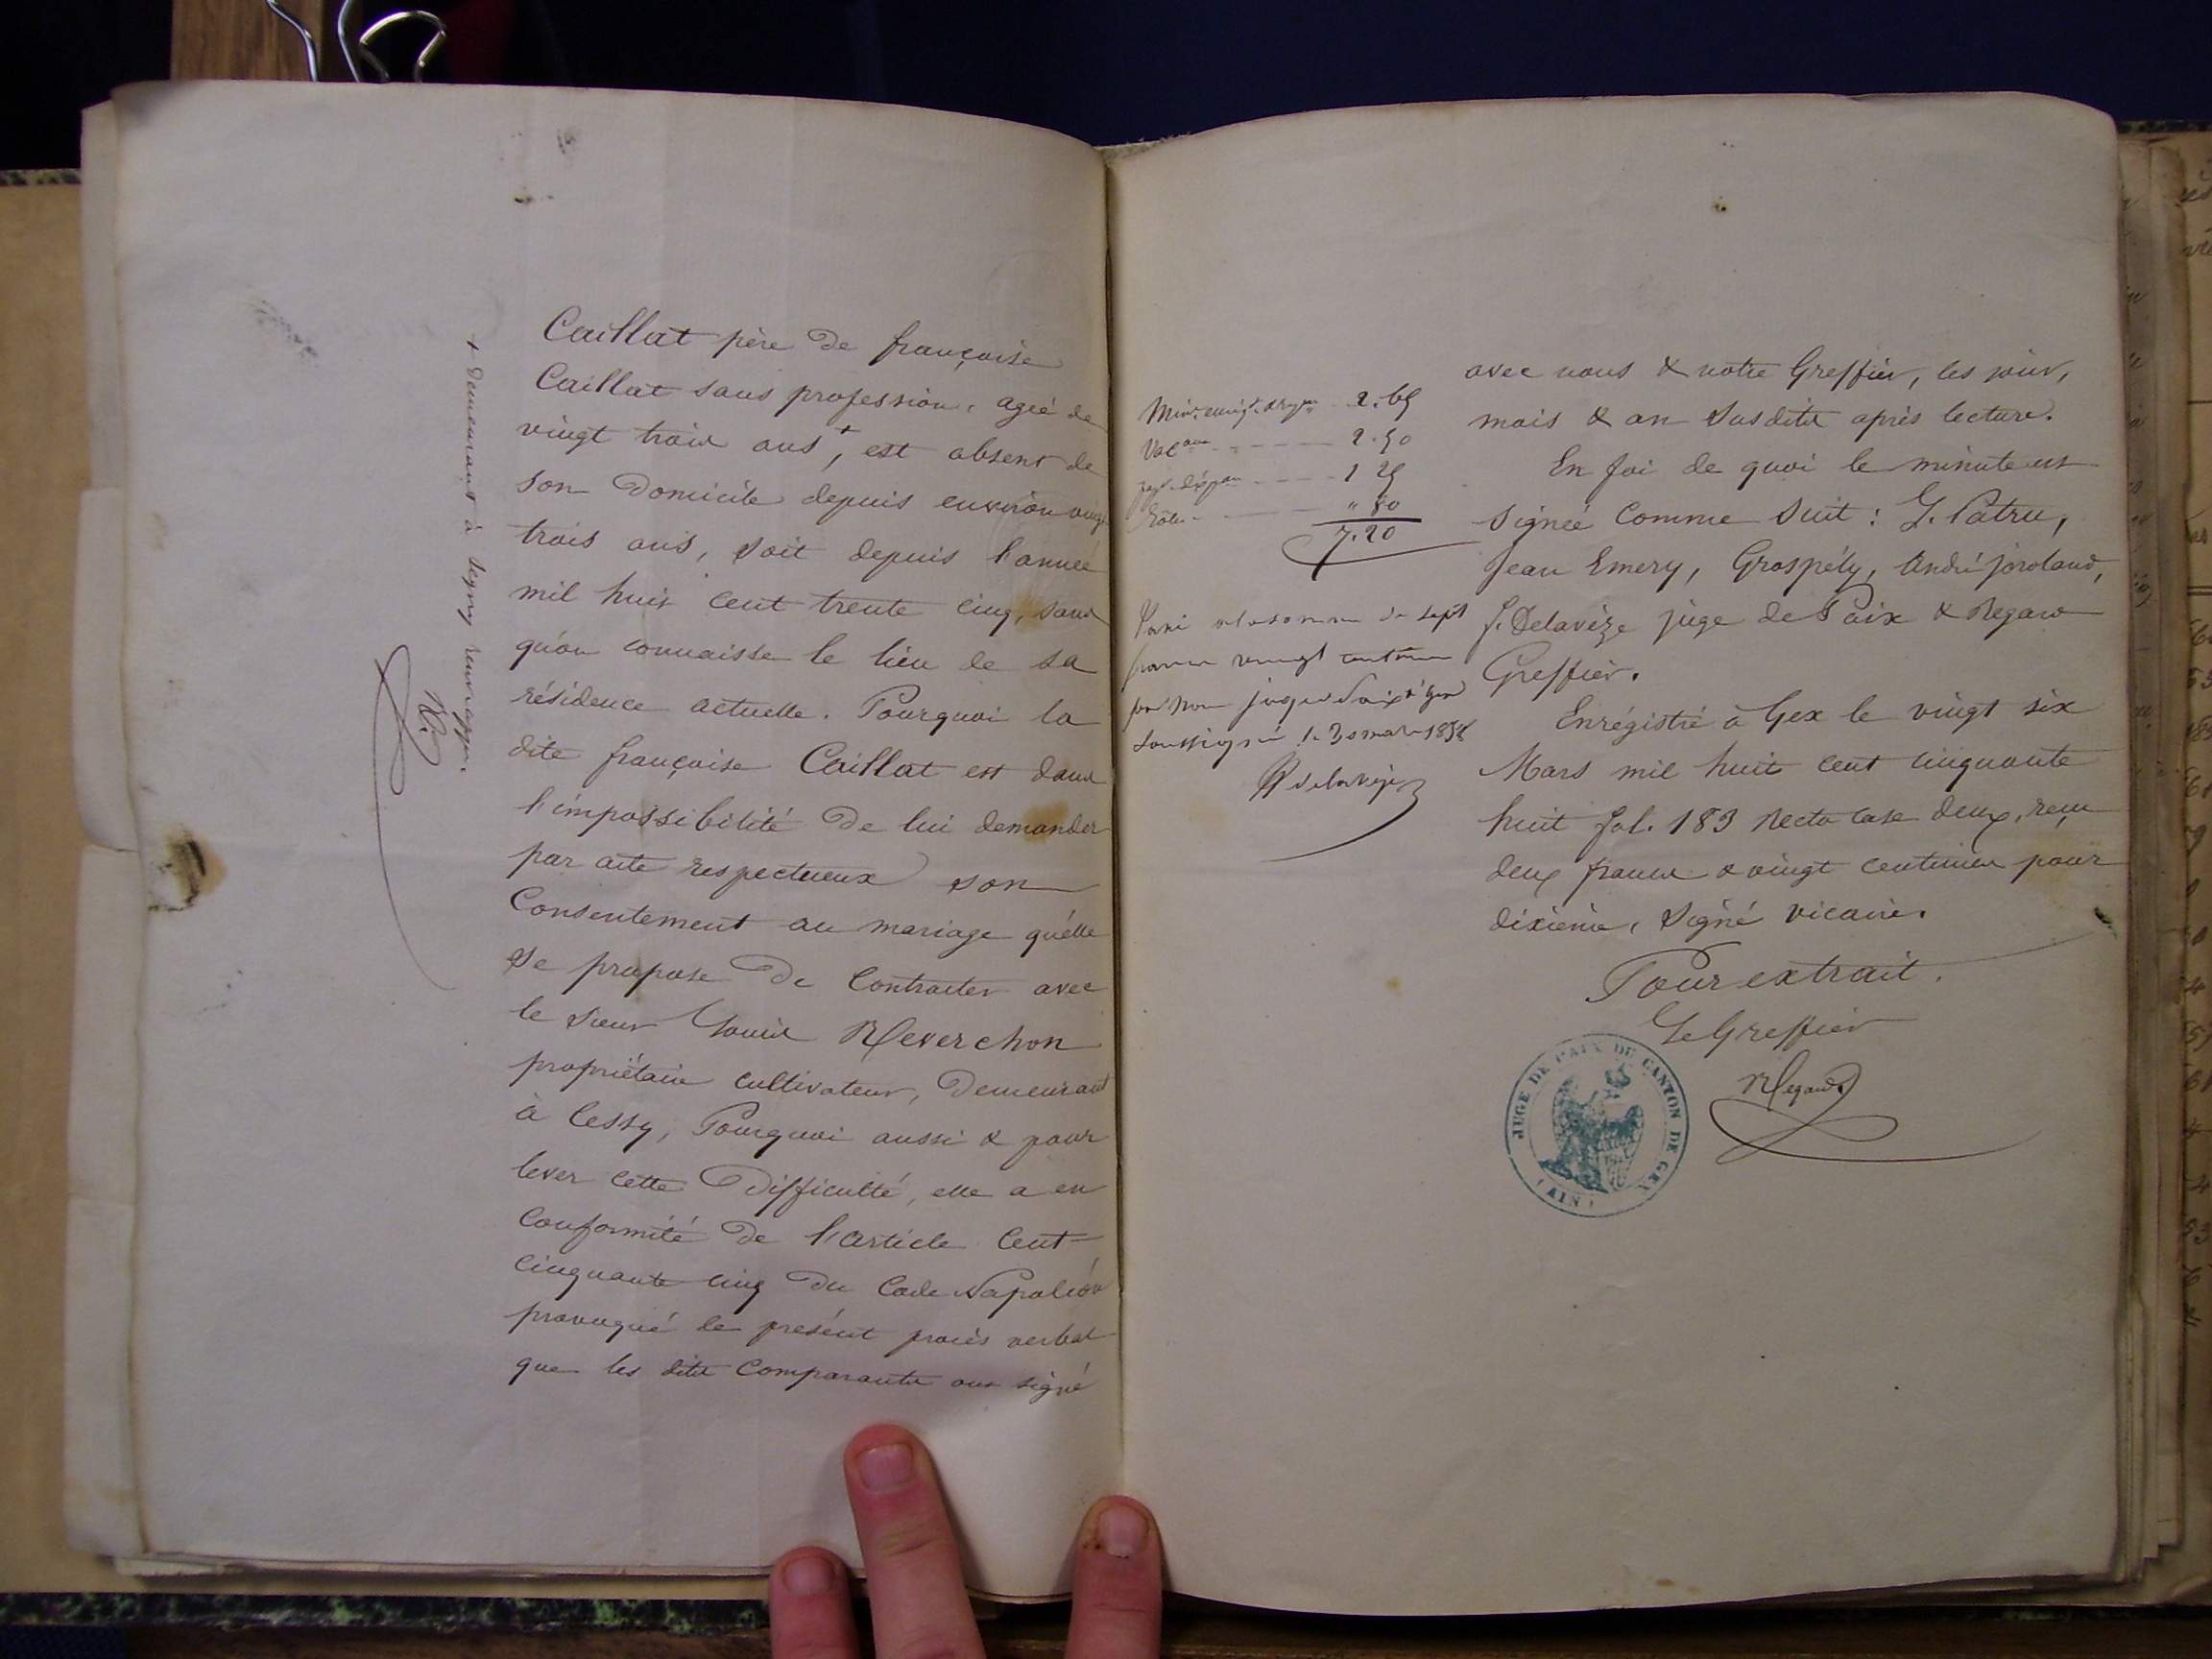 Caillat père de françoise
Caillat sans profession, agée de
vingt trois ans +, est absent de
son domicile depuis environ vingt
trois ans, soit depuis l'année
mil huit cent trente cinq, sans
qu'on connaisse le lieu de sa
résidence actuelle. Pourquoi la
dite françoise Caillat est dans
l'impossibilité de lui demander
par acte respectueux son
Consentement au mariage qu'elle
se propose de Contracter avec
le sieur Louis Reverchon
propriétaire cultivateur, demeurant
à Cessy, Pourquoi aussi & pour
lever cette difficulté, elle a en
conformité de l'article Cent
cinquante cinq du Code Napoléon
provoqué le présent procès verbal
que les dits Comparants ont signé
+ demeurant à Segny
R.
avec nous & notre Greffier, les jour,
mois & an susdits après lecture.
En foi de quoi le minute est
signée Comme suit : J. Patru,
Jean Emery, Grospély, André
J. Delavèze juge de Paix & Regard
Greffier.
Enrégistré à Gex le vingt six
Mars mil huit cent cinquante
huit fol. 183 Recto case deux, reçu
deux francs & vingt centimes pour
dixième, Signé vicaire.
Pour extrait.
Le Greffier
Regard
JUGE DE PAIX DU CANTON DE GEX
(AIN)
2.65
Vac.on 2.50
1 25
Rôle " 80
7.20
la somme de sept
francs vingt centimes
par nous juge de Paix de Gex
soussigné le 30 mars 1858
Delavèze